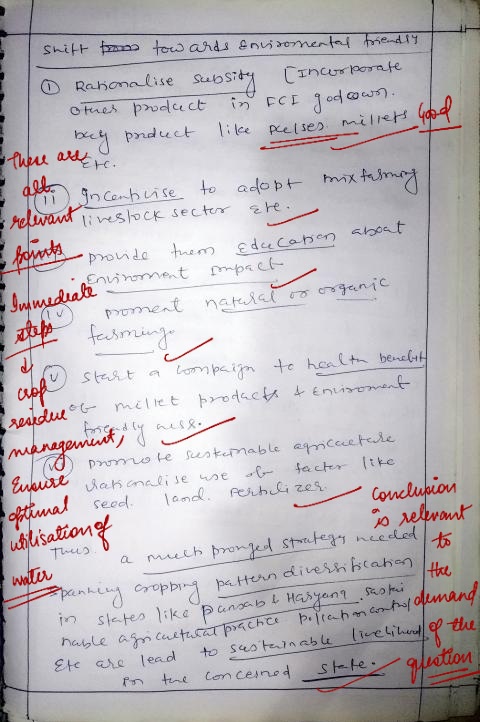 Shift towards Enviromental friendly
① Rationalise subsity [Incorporate
other product in FCI godown.
buy product like pulses millets
Etc.
Good
These are
all
relevant
points
ii) Incentivise to adopt mix farming
livestock sector etc.
provide them education about
Enviroment impact
iv natural or organic
farming.
Immediate
steps
↓
crop
residue
management,
Ensure
optimal
utilisation of
water
v Start a compaign to health benefit
of millet products & Enviroment
friendly ness.
promote sustainable agriculture
rationalise use of factor like
seed. land. Fertilizer.
Conclusion
is relevant
to
the
demand
of the
question
Thus a multi pronged strategy needed
spanning cropping pattern diversification
in states like Punjab & Haryana. sustai
nable agricultural practice. pollution control
Etc are lead to sustainable livelihood
for the concerned state.